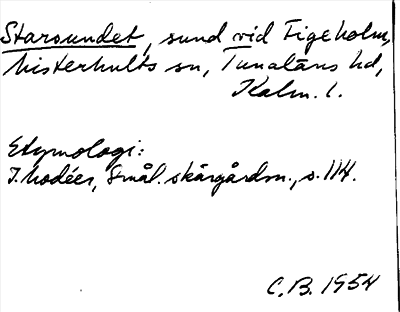 Starsundet, sund vid Figeholm,
Misterhults sn, Tunaläns hd,
Kalm. l.
Etymologi:
I. Modéer, Smål. skärgårdsn., s. 114.
C.B. 1954